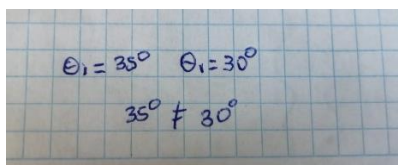 Θ₁ = 35° Θ₁ = 30°
35° ≠ 30°